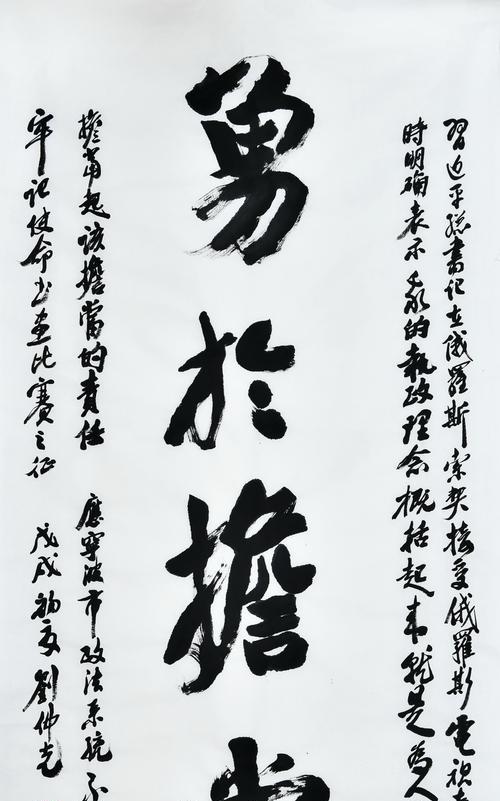 習近平總書记在俄羅斯索契接受俄羅斯電視
時明确表示我的執政理念概括起来就是為人
勇於擔當
擔當起该擔當的責任 應寧波市政法系統不
牢记使命书画比賽之征 戊戌初夏 劉佛光